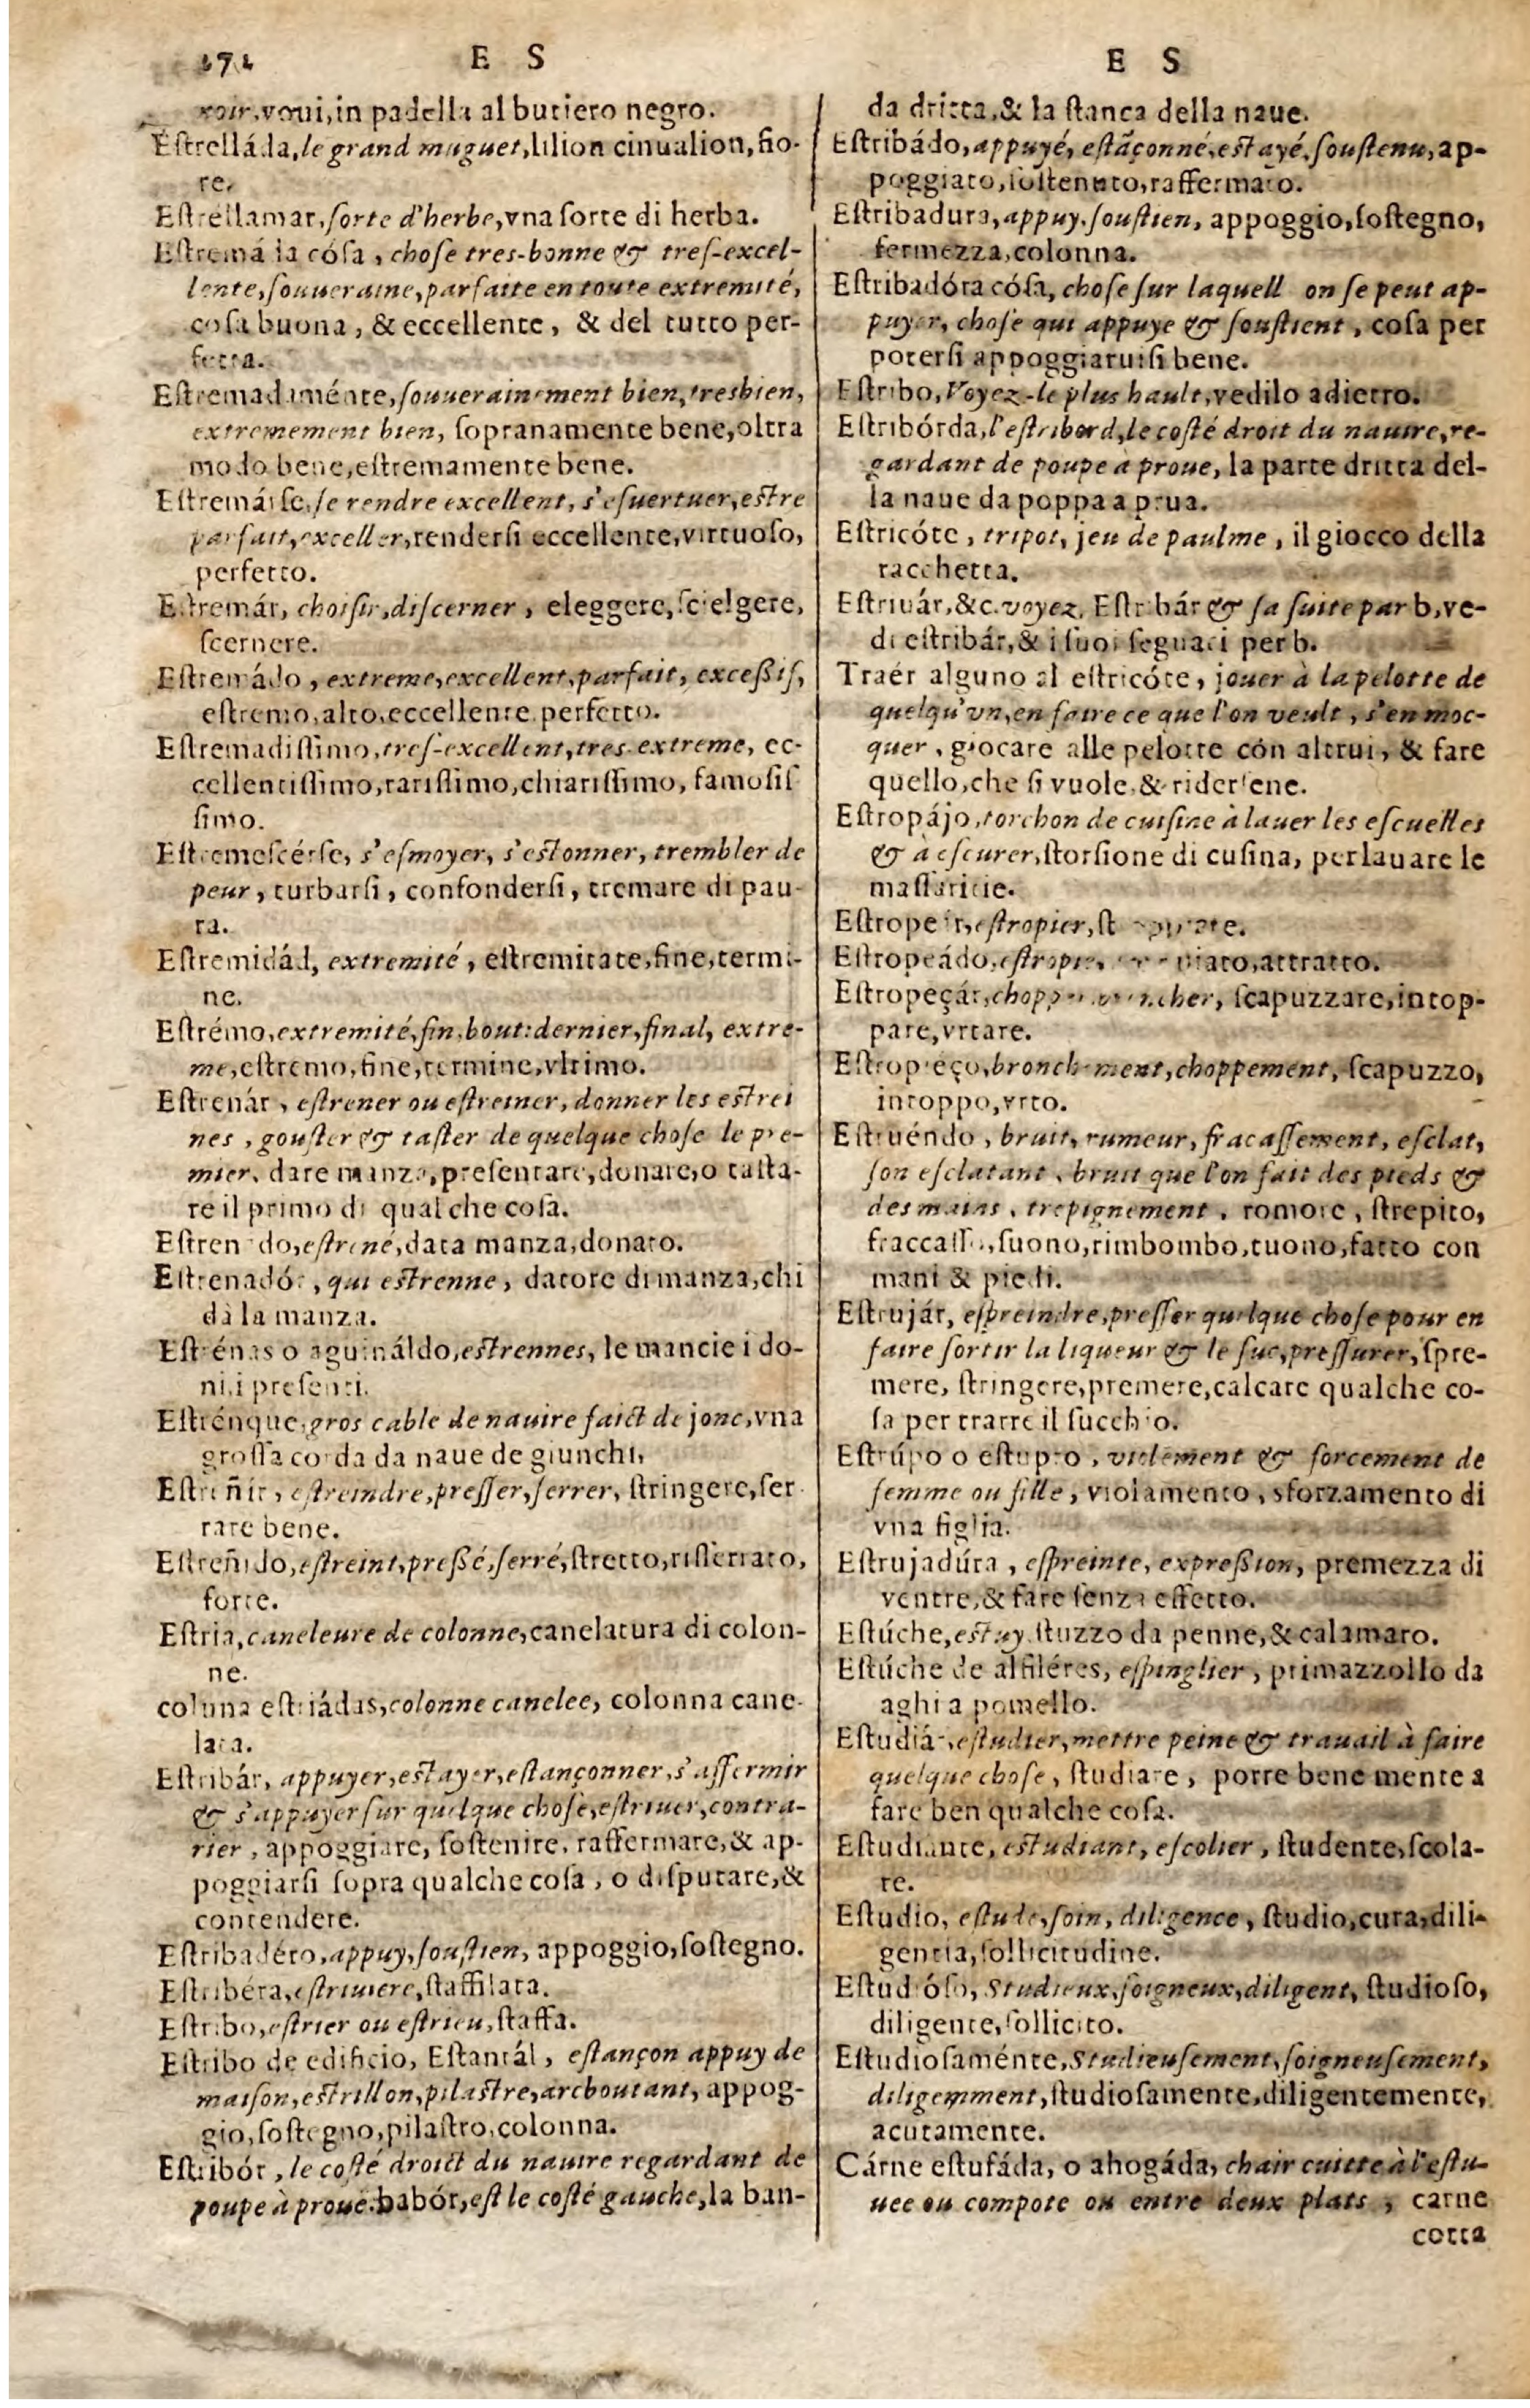 272 E S
noir, voui, in padella al butiero negro.
Estrelláda, le grand muguet, lilion cinualion, fio-
re.
Estrellamar, sorte d'herbe, vna sorte di herba.
Estremá la cósa, chose tres-bonne & tres-excel-
lente, souueraine, parfaite en toute extremité,
cosa buona, & eccellente, & del tutto per-
fetta.
Estremadaménte, souuerainement bien, tresbien,
extremement bien, sopranamente bene, oltra
modo bene, estremamente bene.
Estremárse, se rendre excellent, s'esuertuer, estre
parfait, exceller, rendersi eccellente, virtuoso,
perfetto.
Estremár, choisir, discerner, eleggere, scielgere,
scernere.
Estremádo, extreme, excellent, parfait, excessif,
estremo, alto, eccellente, perfetto.
Estremadissimo, tres-excellent, tres-extreme, ec-
cellentissimo, rarissimo, chiarissimo, famosis
simo.
Estremescérse, s'esmoyer, s'estonner, trembler de
peur, turbarsi, confondersi, tremare di pau-
ra.
Estremidád, extremité, estremitate, fine, termi-
ne.
Estrémo, extremité, fin, bout: dernier, final, extre-
me, estremo, fine, termine, vltimo.
Estrenár, estrener ou estreiner, donner les estrei
nes, gouster & taster de quelque chose le pre-
mier, dare manza, presentare, donare, o tasta-
re il primo di qualche cosa.
Estren do, estrené, data manza, donato.
Estrenadór, qui estrenne, datore di manza, chi
dà la manza.
Estrénas o aguináldo, estrennes, le mancie i do-
ni, i presenti.
Estrénque, gros cable de nauire faict de jonc, vna
grossa corda da naue de giunchi,
Estriñir, estreindre, presser, serrer, stringere, ser
rare bene.
Estreñido, estreint, pressé, serré, stretto, risserrato,
forte.
Estria, caneleure de colonne, canelatura di colon-
ne.
coluna estriádas, colonne canelee, colonna cane-
lata.
Estribár, appuyer, estayer, estançonner, s'affermir
& s'appuyer sur quelque chose, estriuer, contra-
rier, appoggiare, sostenire, raffermare, & ap-
poggiarsi sopra qualche cosa, o disputare, &
contendere.
Estribadéro, appuy, soustien, appoggio, sostegno.
Estribéra, estriuiere, staffilata.
Estribo, estrier ou estrieu, staffa.
Estribo de edificio, Estantál, estançon appuy de
maison, estrillon, pilastre, arcboutant, appog-
gio, sostegno, pilastro, colonna.
Estribór, le costé droict du nauire regardant de
poupe à proue. babór, est le costé gauche, la ban-
E S
da dritta, & la stanca della naue.
Estribádo, appuyé, estãçonné, estayé, soustenu, ap-
poggiato, sostenuto, raffermato.
Estribadura, appuy, soustien, appoggio, sostegno,
fermezza, colonna.
Estribadóra cósa, chose sur laquell on se peut ap-
puyer, chose qui appuye & soustient, cosa per
potersi appoggiaruisi bene.
Estribo, Voyez-le plus hault, vedilo adietro.
Estribórda, l'estribord, le costé droit du nauire, re-
gardant de poupe à proue, la parte dritta del-
la naue da poppa a prua.
Estricóte, tripot, jeu de paulme, il giocco della
racchetta.
Estriuár, &c. voyez, Estribár & sa suite par b, ve-
di estribár, & i suoi seguaci per b.
Traér alguno al estricóte, jouer à la pelotte de
quelqu'vn, en faire ce que l'on veult, s'en moc-
quer, giocare alle pelotte cón altrui, & fare
quello, che si vuole, & ridersene.
Estropájo, torchon de cuisine à lauer les escuelles
& a escurer, storsione di cusina, per lauare le
massaritie.
Estropeár, estropier,
Estropeádo, estropié, attratto.
Estropeçár, scapuzzare, intop-
pare, vrtare.
Estropieço, bronchement, choppement, scapuzzo,
intoppo, vrto.
Estruéndo, bruit, rumeur, fracassement, esclat,
son esclatant, bruit que l'on fait des pieds &
des mains, trepignement, romore, strepito,
fraccasso, suono, rimbombo, tuono, fatto con
mani & piedi.
Estrujár, espreindre, presser quelque chose pour en
faire sortir la liqueur & le suc, pressurer, spre-
mere, stringere, premere, calcare qualche co-
sa per trarre il succhio.
Estrúpo o estupro, violement & forcement de
femme ou fille, violamento, sforzamento di
vna figlia.
Estrujadúra, espreinte, expression, premezza di
ventre, & fare senza effetto.
Estúche, estuy, stuzzo da penne, & calamaro.
Estúche de alfiléres, espinglier, primazzollo da
aghi a pomello.
Estudiár, estudier, mettre peine & trauail à faire
quelque chose, studiare, porre bene mente a
fare ben qualche cosa.
Estudiante, estudiant, escolier, studente, scola-
re.
Estudio, estude, soin, diligence, studio, cura, dili-
gentia, sollicitudine.
Estudióso, Studieux, soigneux, diligent, studioso,
diligente, sollicito.
Estudiosaménte, Studieusement, soigneusement,
diligemment, studiosamente, diligentemente,
acutamente.
Cárne estufáda, o ahogáda, chair cuitte à l'estu-
uee ou compote ou entre deux plats, carne
cotta